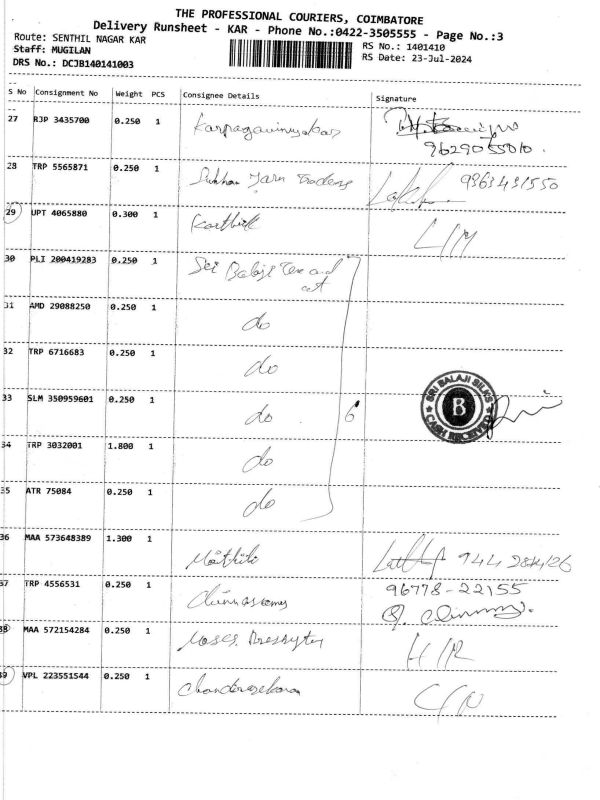 THE PROFESSIONAL COURIERS, COIMBATORE
Delivery Runsheet - KAR - Phone No.:0422-3505555 - Page No.:3
Route: SENTHIL NAGAR KAR
Staff: MUGILAN
DRS No.: DCJB140141003
RS No.: 1401410
RS Date: 23-Jul-2024
S No Consignment No Weight PCS Consignee Details Signature
27 RJP 3435700 0.250 1
28 TRP 5565871 0.250 1 Yarn Traders 9363431550
29 UPT 4065880 0.300 1 Karthik L/M
30 PLI 200419283 0.250 1 Sri Balaji Tex and
31 AMD 29088250 0.250 1 do
32 TRP 6716683 0.250 1 do
33 SLM 350959601 0.250 1 do 6
SRI BALAJI SILKS
B
CASH RECEIVED
34 TRP 3032001 1.800 1 do
35 ATR 75084 0.250 1 do
36 MAA 573648389 1.300 1
37 TRP 4556531 0.250 1 Chinnasamy 96778-22155
38 MAA 572154284 0.250 1 Moses. Presbyter H/R
39 VPL 223551544 0.250 1 Chandrasekaran C/N